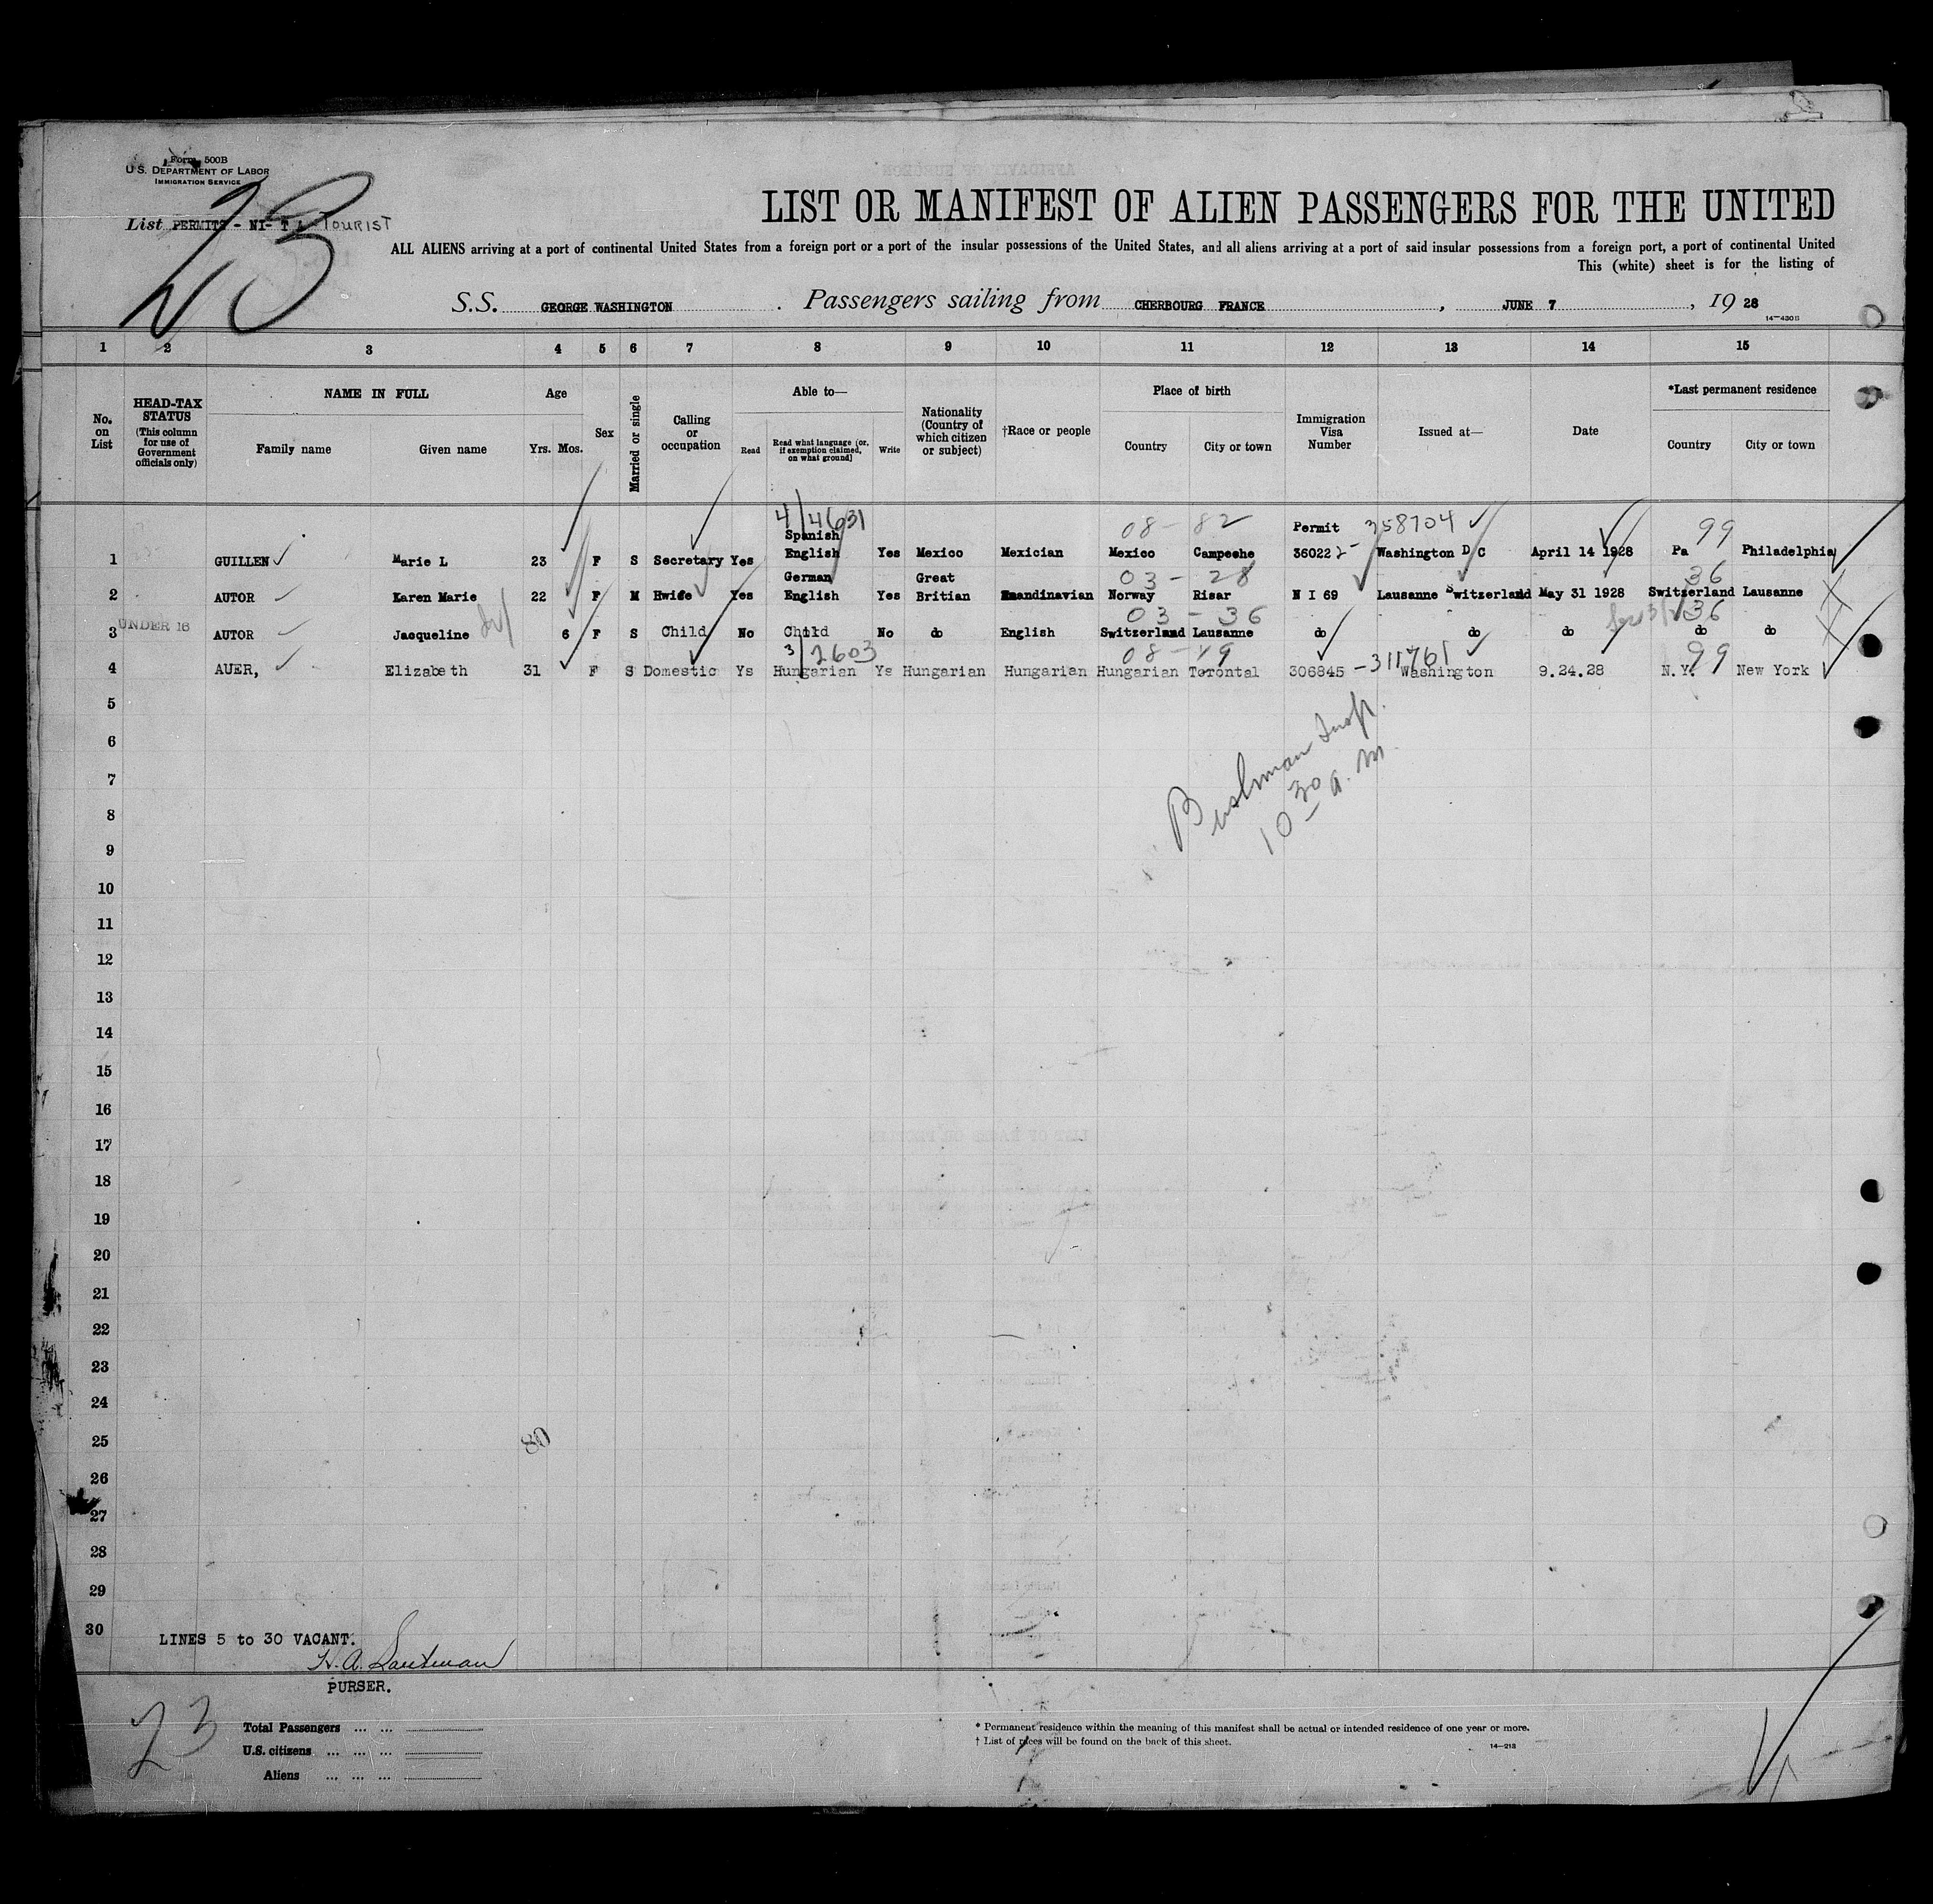 Form 500B
U.S. DEPARTMENT OF LABOR
IMMIGRATION SERVICE
23
List PERMITS - NI- T A TOURIST
LIST OR MANIFEST OF ALIEN PASSENGERS FOR THE UNITED
ALL ALIENS arriving at a port of continental United States from a foreign port or a port of the insular possessions of the United States, and all aliens arriving at a port of said insular possessions from a foreign port, a port of continental United
This (white) sheet is for the listing of
S.S. GEORGE WASHINGTON . Passengers sailing from CHERBOURG FRANCE , JUNE 7 , 19 28
14-430B
1 2 3 4 5 6 7 8 9 10 11 12 13 14 15
No. on List
HEAD-TAX STATUS (This column for use of Government officials only)
NAME IN FULL
Family name Given name
Age
Yrs. Mos.
Sex
Married or single
Calling or occupation
Able to—
Read Read what language [or, if exemption claimed, on what ground] Write
Nationality (Country of which citizen or subject)
†Race or people
Place of birth
Country City or town
Immigration Visa Number
Issued at—
Date
*Last permanent residence
Country City or town
4/4631 08-82 Permit 358704 99
Spanish
1 GUILLEN Marie L 23 F S Secretary Yes English Yes Mexico Mexician Mexico Campeche 36022 2- Washington D C April 14 1928 Pa Philadelphia
German Great 03-28 36
2 AUTOR Karen Marie 22 F M Hwife Yes English Yes Britian Scandinavian Norway Risar N I 69 Lausanne Switzerland May 31 1928 Switzerland Lausanne
UNDER 16 03-36 36
3 AUTOR Jacqueline 6 F S Child No Child No do English Switzerland Lausanne do do do do do
3/2603 08-49 99
4 AUER, Elizabeth 31 F S Domestic Ys Hungarian Ys Hungarian Hungarian Hungarian Torontal 306845 -311761 Washington 9.24.28 N.Y. New York
5
6
Bushman Insp.
7
10 30 a.m
8
9
10
11
12
13
14
15
16
17
18
19
20
21
22
23
24
25
26
27
28
29
30
LINES 5 to 30 VACANT.
PURSER.
23
Total Passengers ... ...
U.S. citizens ... ... ...
Aliens ... ... ...
* Permanent residence within the meaning of this manifest shall be actual or intended residence of one year or more.
† List of races will be found on the back of this sheet.
14-213